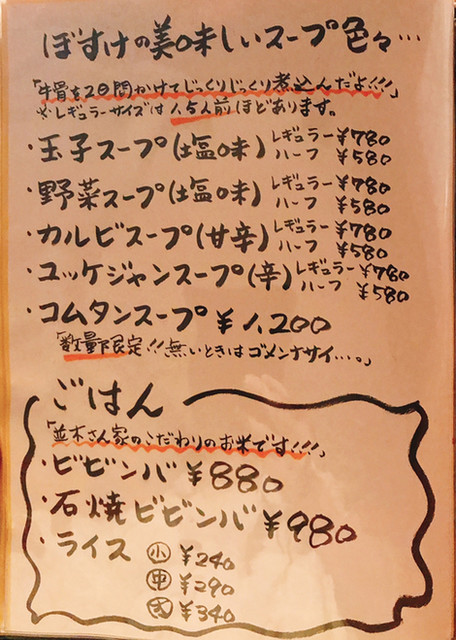 ぼすけの美味しいスープ色々…
「牛骨を2日間かけてじっくりじっくり煮込んだよ!!!」
※レギュラーサイズは1.5人前ほどあります。
・玉子スープ(塩味) レギュラー ¥780
ハーフ ¥580
・野菜スープ(塩味) レギュラー ¥780
ハーフ ¥580
・カルビスープ(甘辛) レギュラー ¥780
ハーフ ¥580
・ユッケジャンスープ(辛) レギュラー ¥780
ハーフ ¥580
・コムタンスープ ¥1,200
「数量限定!!無いときはゴメンナサイ…。」
ごはん
「並木さん家のこだわりのお米です!!!」
・ビビンバ ¥880
・石焼ビビンバ ¥980
・ライス 小 ¥240
中 ¥290
大 ¥340